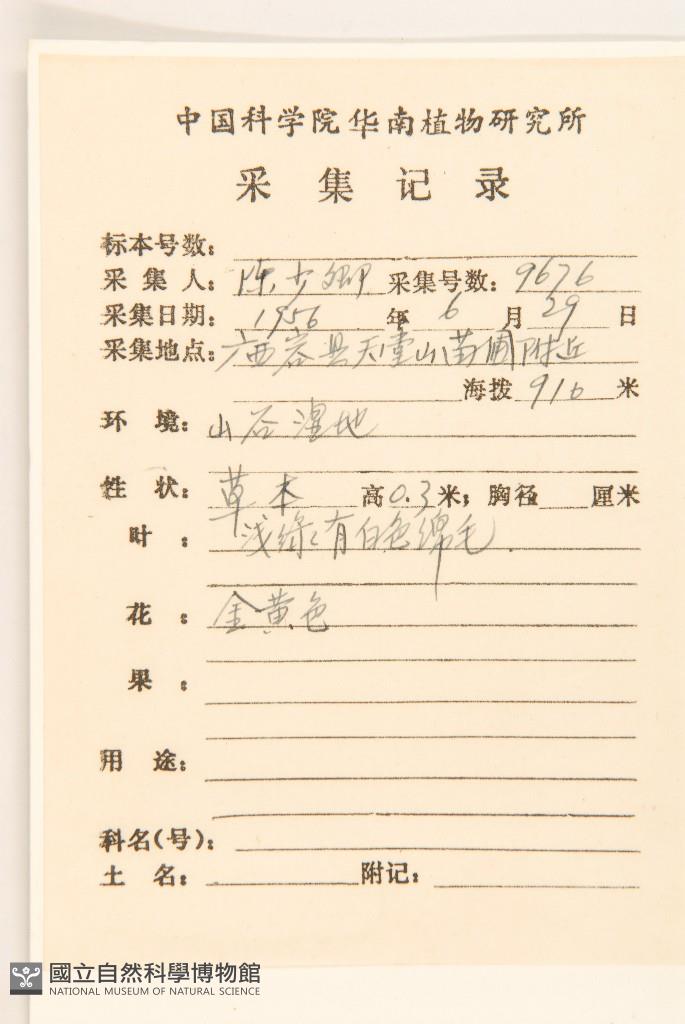 中国科学院华南植物研究所
采集记录
标本号数:
采集人: 陈少卿 采集号数: 9676
采集日期: 1956 年 6 月 29 日
采集地点: 广西容县天堂山苗圃附近
海拨 916 米
环境: 山谷湿地
性状: 草本 高 0.3 米; 胸径 厘米
叶: 浅綠有白色绵毛.
花: 金黄色
果:
用途:
科名(号):
土名: 附记:
國立自然科學博物館
NATIONAL MUSEUM OF NATURAL SCIENCE